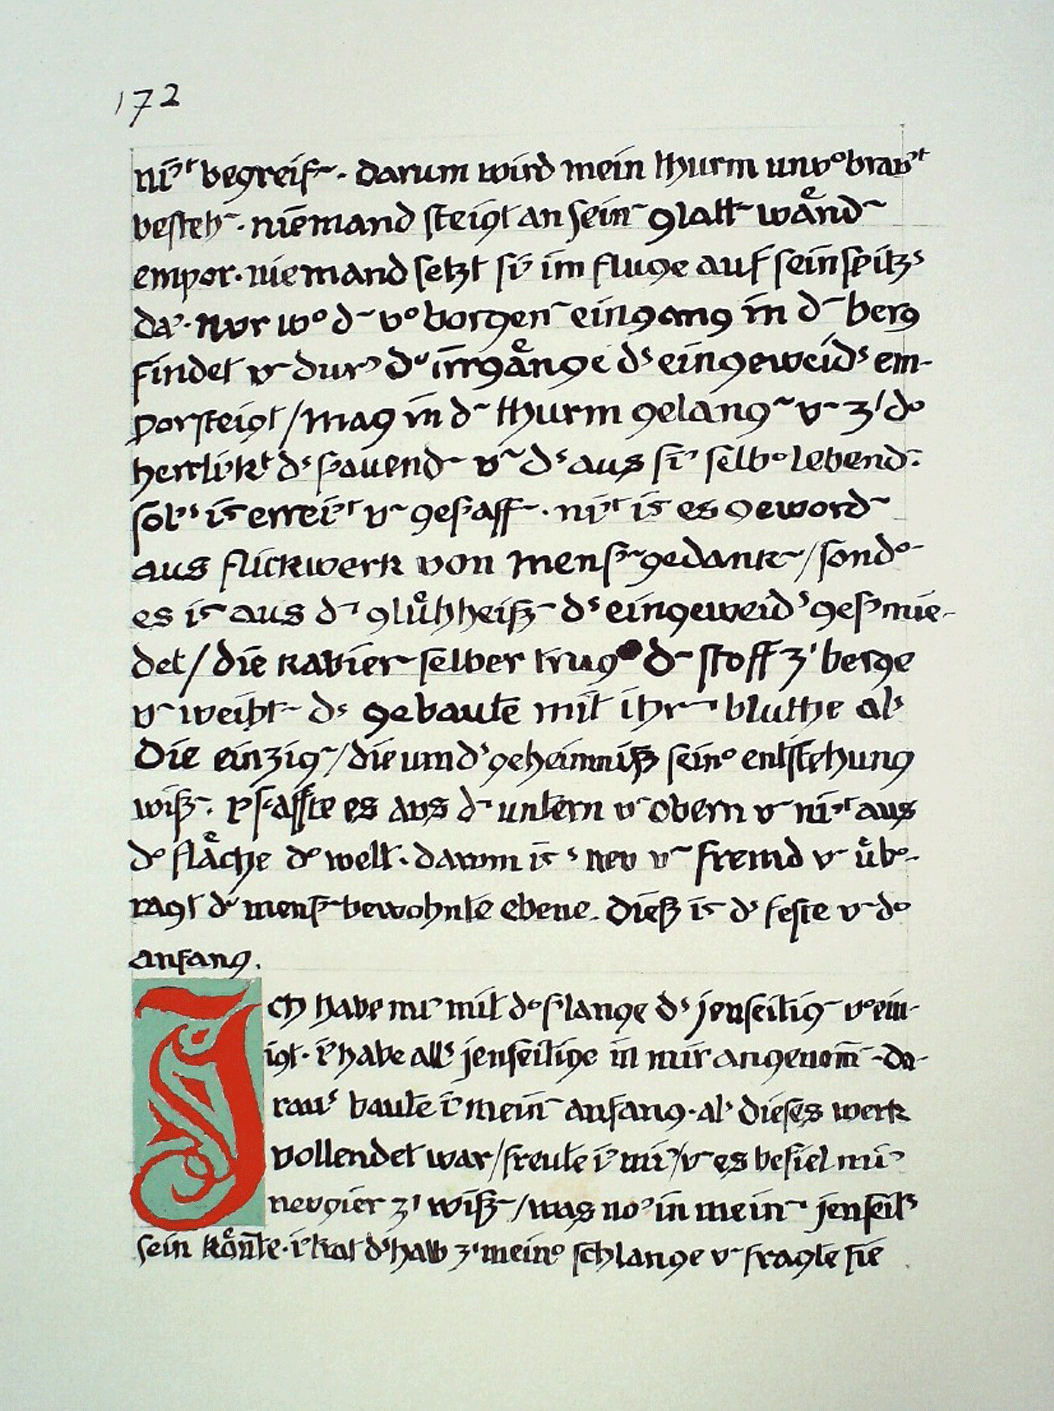 172
ni᷎ᵗ begreif‾. darum wird mein thurm unv°brauᵗ
besteh‾. niemand steigt an sein‾ glatt‾ wånd‾
empor. niemand setzt si᷎ im fluge auf sein spitzˢ
da᷎. nur w° d‾ v°borgen‾ eingang in d‾ berg
findet v‾ dur᷎ d᷎ irrgånge dˢ eingeweidˢ em-
porsteigt/mag in d‾ thurm gelang‾ v‾ z' d°
herrli᷎kᵗ dˢ s᷎auend‾ v‾ dˢ aus si᷎ selb° lebend.
sol᷎ˢ is‾ errei᷎ᵗ v‾ ges᷎aff‾. ni᷎ᵗ is‾ es geword‾
aus flickwerk von mens᷎‾gedank‾/sond°-
es is‾ aus d‾ glůhheiß‾ dˢ eingeweid' ges᷎mie-
det/die kabier‾ selber trug d‾ stoff z' berge
v‾ weiht‾ dˢ gebaute mit ihr‾ bluthe alˢ
die einzig‾/die um dˢ geheimniß sein° entstehung
wiß‾. i᷎ s᷎affte es aus d‾ untern v‾ obern v‾ ni᷎ᵗ aus
d° flåche d° welt. darum is‾ ˢ neu v‾ fremd v‾ ůb°-
ragt d᷎ mens᷎‾bewohnte ebene. dieß is‾ d᷎ feste v‾ d°
anfang.
Ich habe mi᷎ mit d° s᷎lange dˢ jenseitig‾ v°ein-
igt. i᷎ habe allˢ jenseitige in mir angenom‾ -da-
rauˢ baute i᷎ mein‾ anfang. alˢ dieses werk
vollendet war/freute i᷎ mi᷎/v‾ es befiel mi᷎
neugier z' wiß‾/was no᷎ in mein‾ jenseitˢ
sein kőnte. i᷎ trat d᷎halb z' mein° schlange v‾ fragte sie